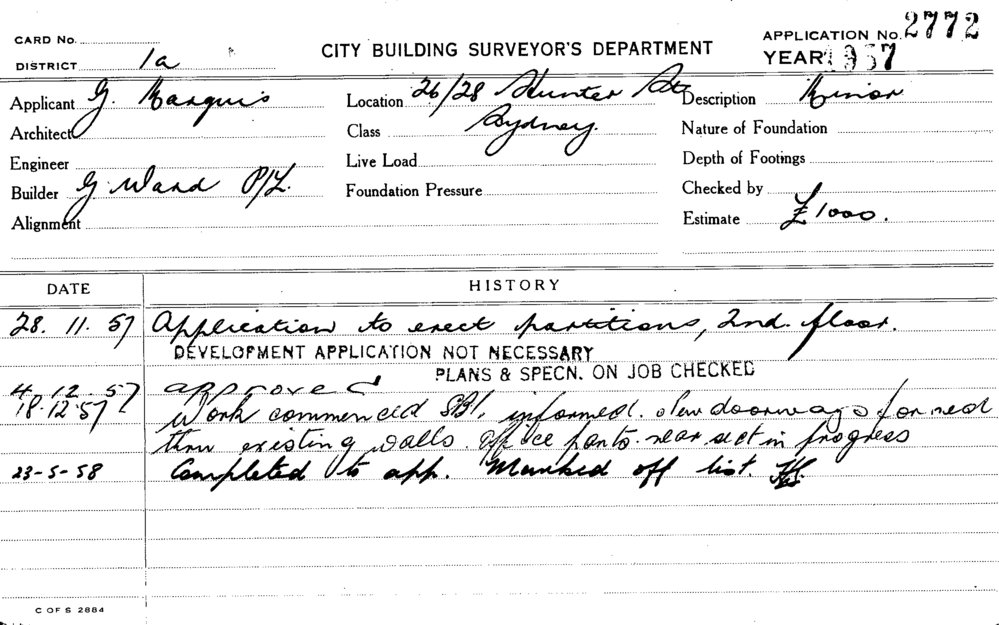 CARD No.
DISTRICT 1a
CITY BUILDING SURVEYOR'S DEPARTMENT
APPLICATION No. 2772
YEAR 1957
Applicant G. Marquis
Location 26/28 Hunter St
Description Minor
Architect
Class Sydney.
Nature of Foundation
Engineer
Live Load
Depth of Footings
Builder G. Ward P/L.
Foundation Pressure
Checked by
Alignment
Estimate £1000.
DATE HISTORY
28. 11. 57 Application to erect partitions, 2nd. floor.
DEVELOPMENT APPLICATION NOT NECESSARY
PLANS & SPECN. ON JOB CHECKED
4. 12. 57 approved
18.12.57 Work commenced informed. New doorways formed
thru existing walls. office partns. near sect in progress
23-5-58 Completed to app. Marked off list.
C OF S 2884